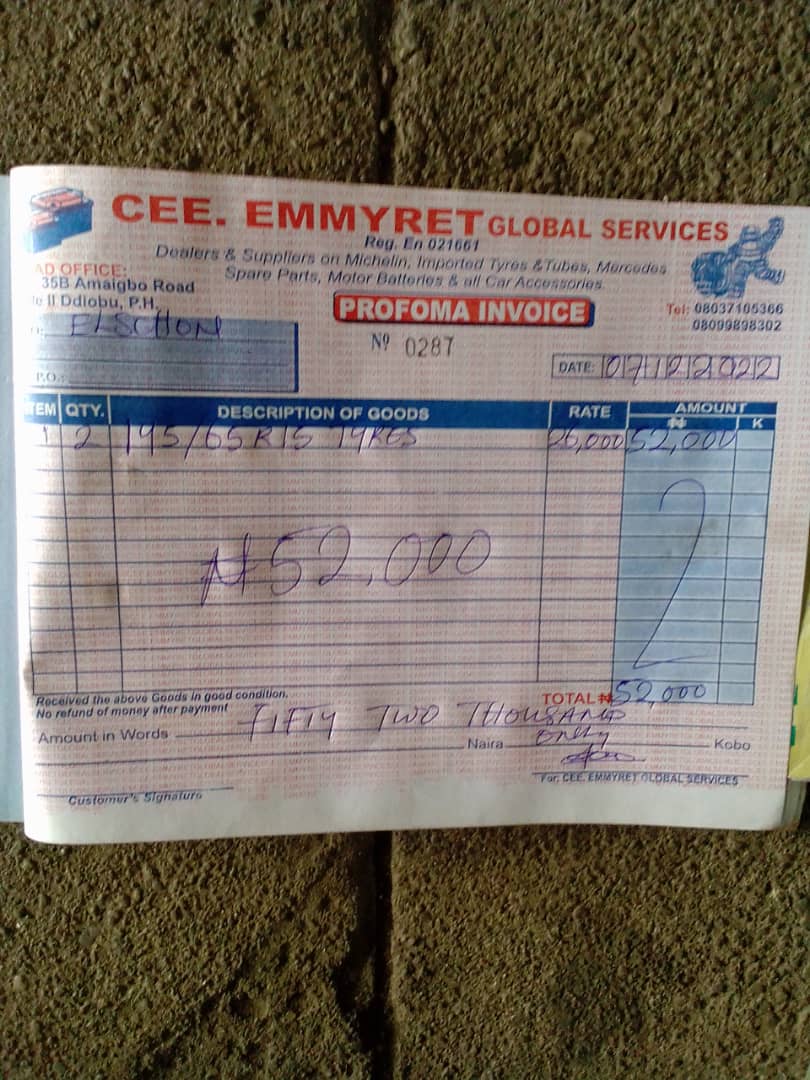 CEE. EMMYRET GLOBAL SERVICES
Reg. En 021661
Dealers & Suppliers on Michelin, Imported Tyres & Tubes, Mercedes
Spare Parts, Motor Batteries & all Car Accessories.
AD OFFICE:
35B Amaigbo Road
le II Ddiobu, P.H.
PROFOMA INVOICE
Tel: 08037105366
08099898302
ELSCHON
Nº 0287
P.O.:
DATE: 07122022
TEM QTY. DESCRIPTION OF GOODS RATE AMOUNT
₦ K
1 2 195/65R15 TYRES 26,000 52,000
₦52,000
Received the above Goods in good condition.
No refund of money after payment
TOTAL ₦ 52,000
Amount in Words FIFTY TWO THOUSAND
Naira only Kobo
For: CEE. EMMYRET GLOBAL SERVICES
Customer's Signature